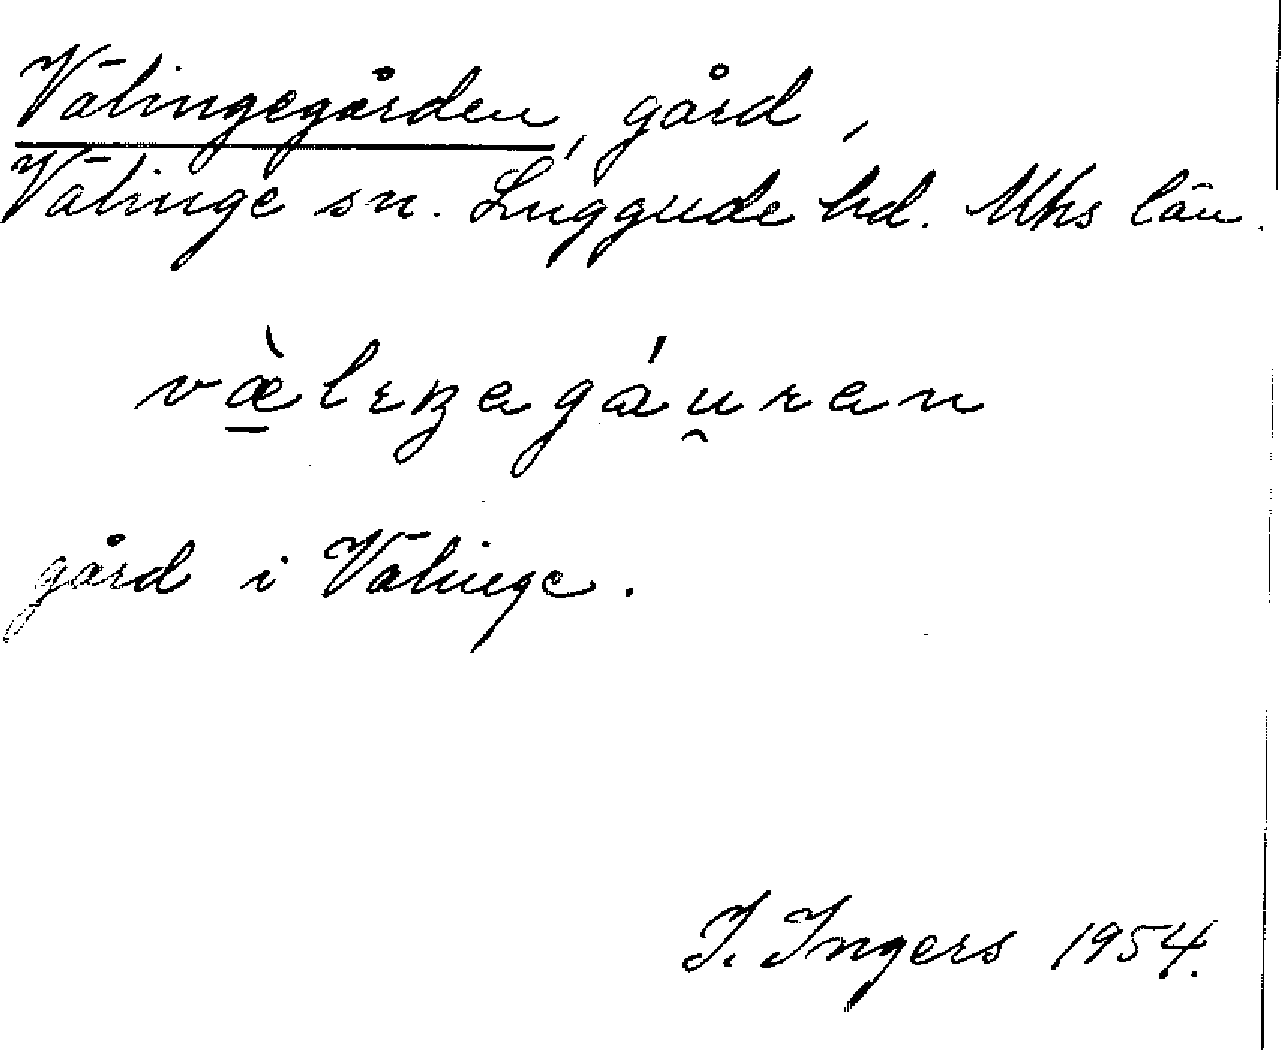 Välingegården, gård,
Välinge sn. Luggude hd. Mhs län.
væ̀lıŋagáu̯ran
gård i Välinge.
I. Ingers 1954.